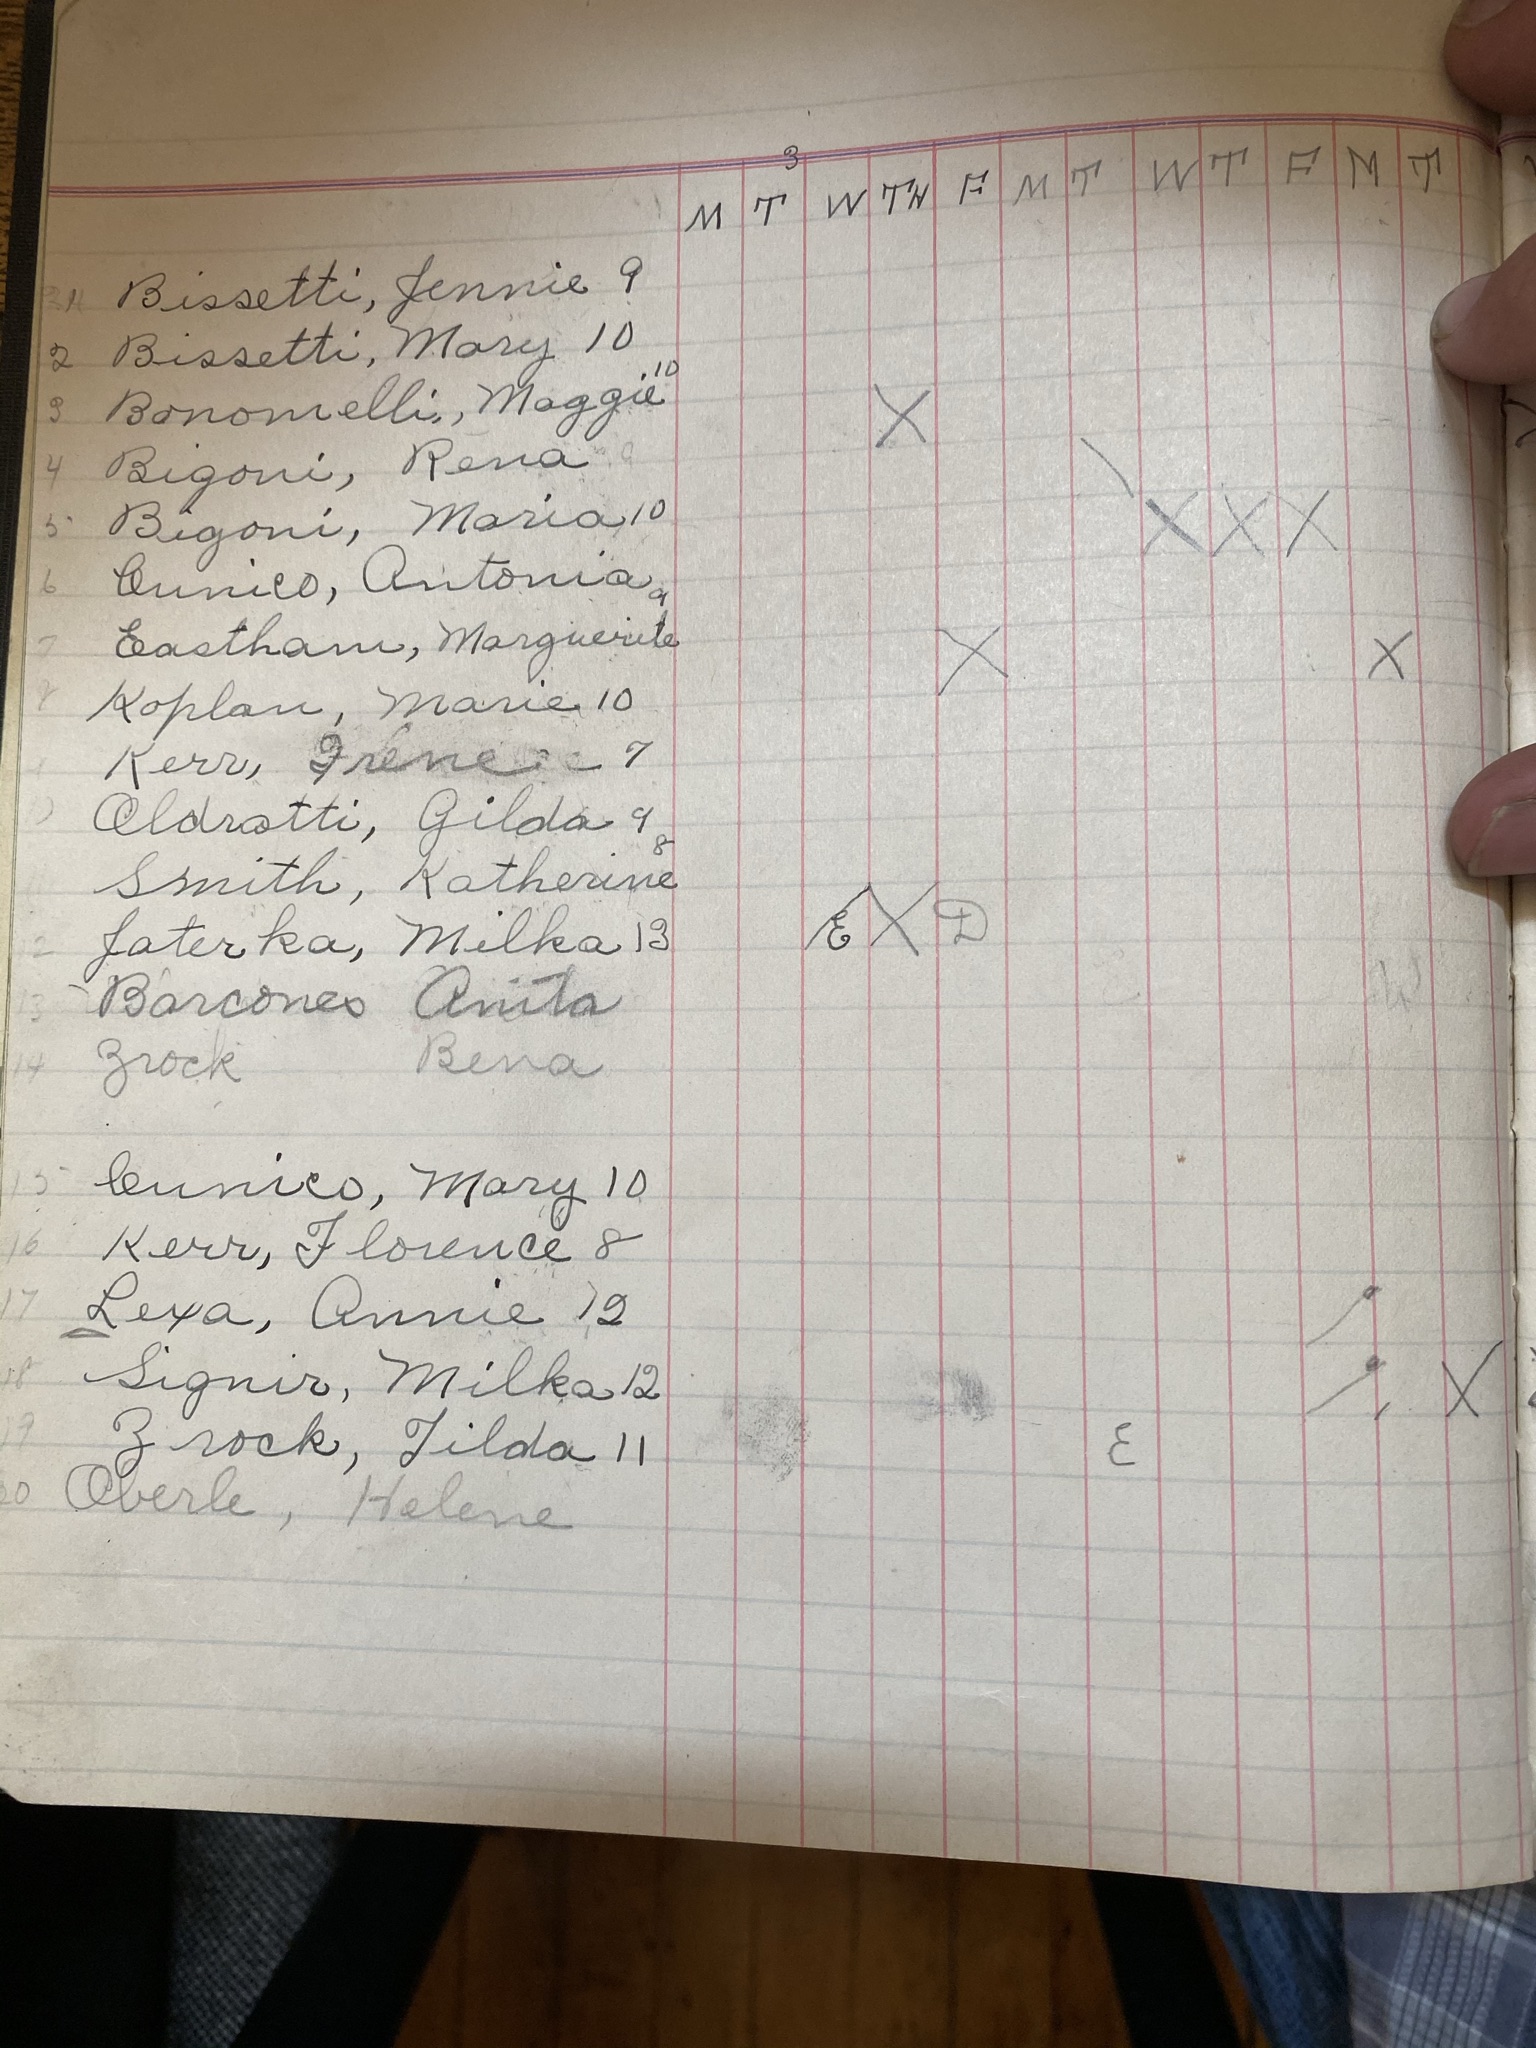 3
M T W TH F M T W T F M T
Bissetti, Jennie 9
2 Bissetti, Mary 10
3 Bonomelli, Maggie 10 X
4 Bigoni, Rena 9
5 Bigoni, Maria 10 \ X X X
6 Cunico, Antonia 9
7 Eastham, Marguerite X X
8 Koplan, Marie 10
Kerr, Irene 7
Oldratti, Gilda 9
Smith, Katherine 8
12 Jaterka, Milka 13 E X D
13 Barcones Anita
14 Zrock Bena
15 Cunico, Mary 10
16 Kerr, Florence 8
17 Lexa, Annie 12
18 Signir, Milka 12 X
19 Zrock, Tilda 11 E
20 Oberle, Helene